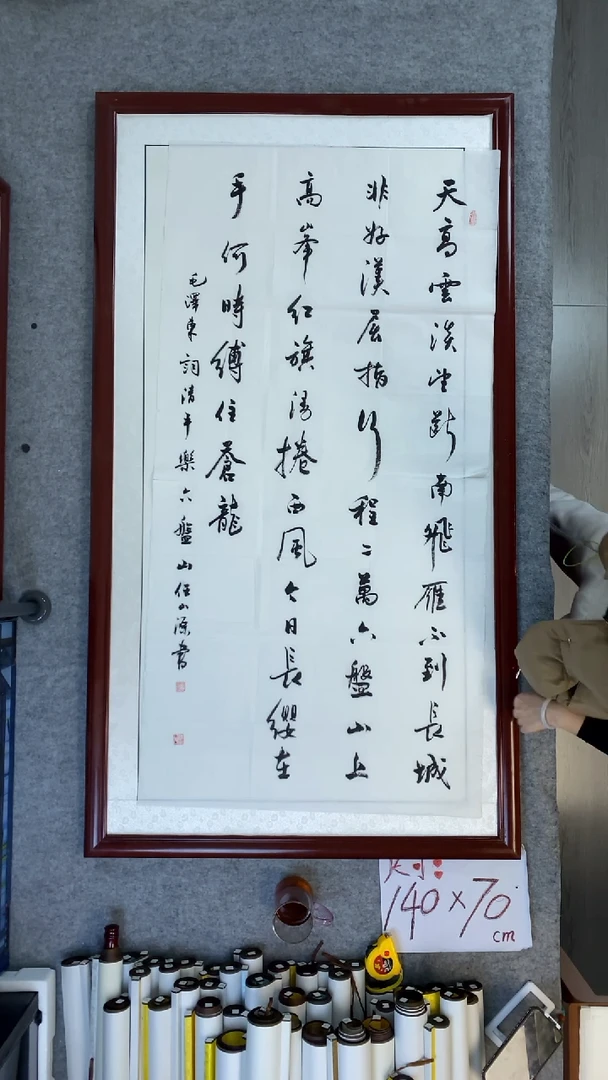 天高雲淡望斷南飛雁不到長城
非好漢屈指行程二萬六盤山上
高峯紅旗漫捲西風今日長纓在
手何時縛住蒼龍
毛澤東詞清平樂六盤山任
源書
尺寸:
140×70
cm